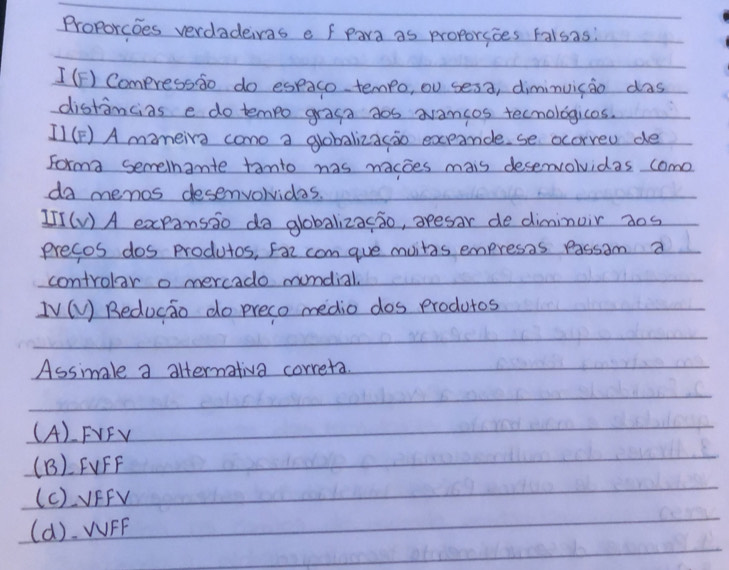 Proporções verdadeiras e f para as proporções falsas:
I (F) Compressão do espaço-tempo, ou seja, diminuição das
distâncias e do tempo graça aos avanços tecnológicos.
II (F) A maneira como a globalização expande-se ocorreu de
forma semelhante tanto nas nações mais desenvolvidas como
da menos desenvolvidas.
III (V) A expansão da globalização, apesar de diminuir aos
preços dos produtos, faz com que muitas empresas passam a
controlar o mercado mundial.
IV (V) Redução do preço médio dos produtos
Assimale a alternativa correta.
(A)- FVFV
(B)- FVFF
(C)- VFFV
(d)- VVFF